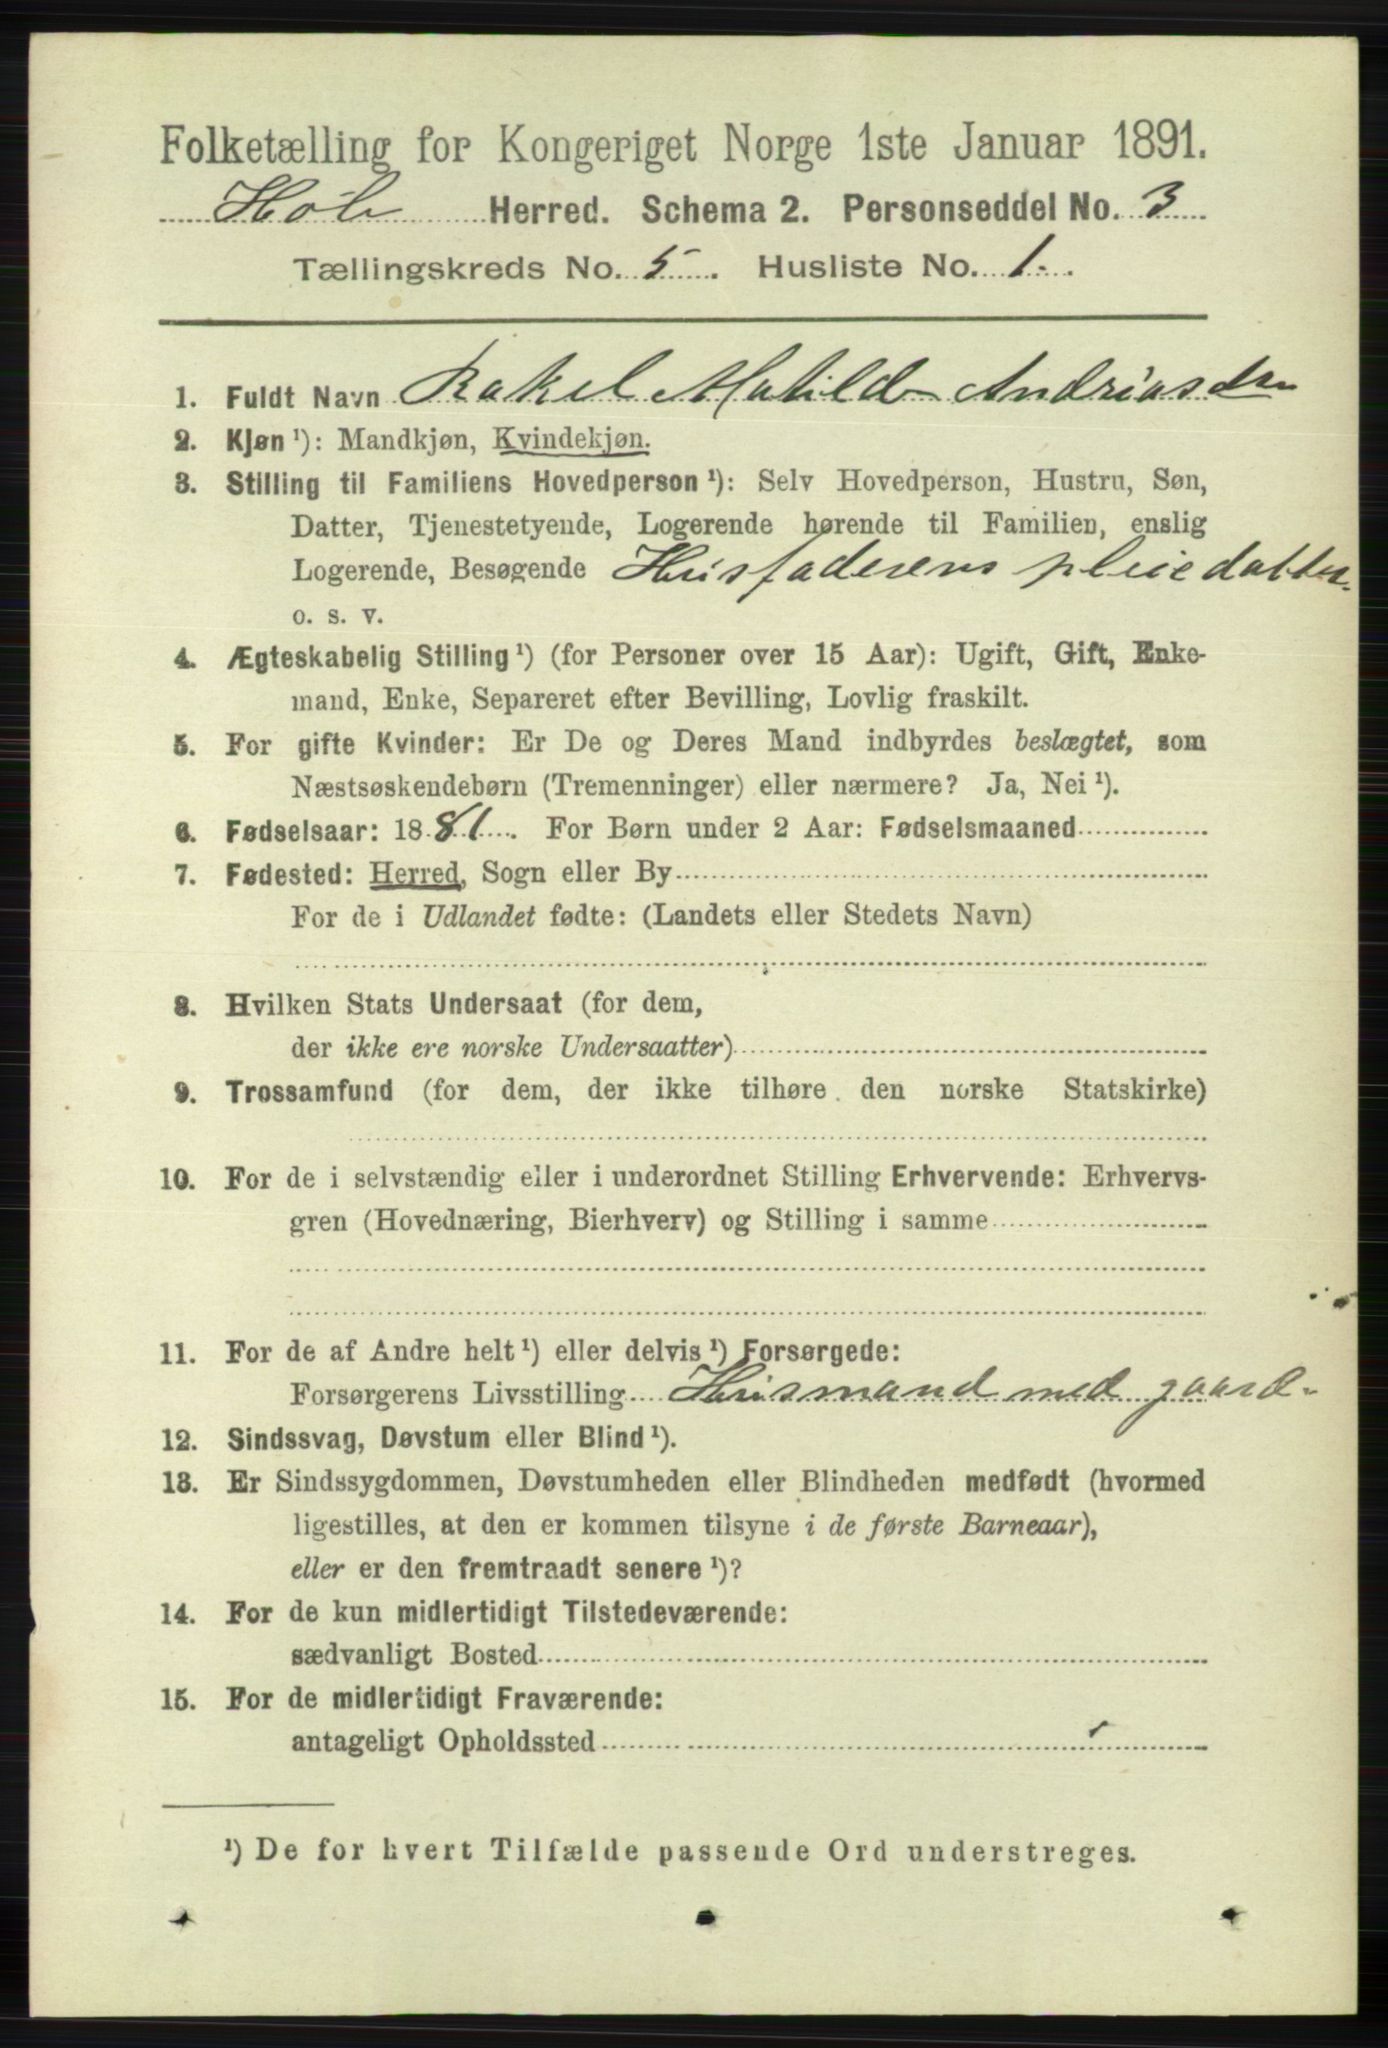 Folketælling for Kongeriget Norge 1ste Januar 1891.
Herred. Schema 2. Personseddel No. 3
Tællingskreds No. 5. Husliste No. 1.
1. Fuldt Navn Rakel Matilde Andriasdr
2. Kjøn ¹): Mandkjøn, Kvindekjøn.
3. Stilling til Familiens Hovedperson ¹): Selv Hovedperson, Hustru, Søn,
Datter, Tjenestetyende, Logerende hørende til Familien, enslig
Logerende, Besøgende Husfaderens pleiedatter
o. s. v.
4. Ægteskabelig Stilling ¹) (for Personer over 15 Aar): Ugift, Gift, Enke-
mand, Enke, Separeret efter Bevilling, Lovlig fraskilt.
5. For gifte Kvinder: Er De og Deres Mand indbyrdes beslægtet, som
Næstsøskendebørn (Tremenninger) eller nærmere? Ja, Nei ¹).
6. Fødselsaar: 1881. For Børn under 2 Aar: Fødselsmaaned
7. Fødested: Herred, Sogn eller By
For de i Udlandet fødte: (Landets eller Stedets Navn)
8. Hvilken Stats Undersaat (for dem,
der ikke ere norske Undersaatter)
9. Trossamfund (for dem, der ikke tilhøre den norske Statskirke)
10. For de i selvstændig eller i underordnet Stilling Erhvervende: Erhvervs-
gren (Hovednæring, Bierhverv) og Stilling i samme
11. For de af Andre helt ¹) eller delvis ¹) Forsørgede:
Forsørgerens Livsstilling Husmand med gaard
12. Sindssvag, Døvstum eller Blind ¹).
13. Er Sindssygdommen, Døvstumheden eller Blindheden medfødt (hvormed
ligestilles, at den er kommen tilsyne i de første Barneaar),
eller er den fremtraadt senere ¹)?
14. For de kun midlertidigt Tilstedeværende:
sædvanligt Bosted
15. For de midlertidigt Fraværende:
antageligt Opholdssted
¹) De for hvert Tilfælde passende Ord understreges.